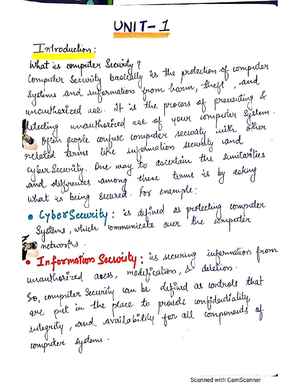 UNIT-1
Introduction:
What is computer Security?
Computer Security basically is the protection of computer
systems and information from harm, theft, and
unauthorized use. It is the process of preventing &
detecting unauthorized use of your computer system.
Often people confuse computer security with other
related terms like information security and
cybersecurity. One way to ascertain the similarities
and differences among these terms is by asking
what is being secured. For example:
• CyberSecurity: is defined as protecting computer
systems, which communicate over the computer
networks.
• Information Security: is securing information from
unauthorized access, modification, & deletion.
So, computer Security can be defined as controls that
are put in the place to provide confidentiality,
integrity, and availability for all components of
computer systems.
Scanned with CamScanner